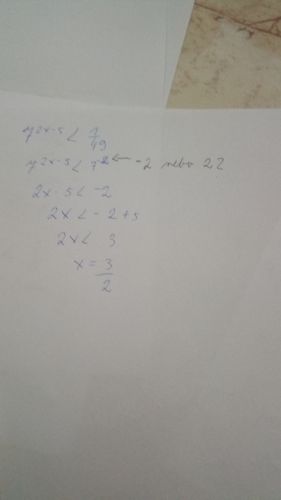 7^2x-5 < 1/49
7^2x-5 < 7^-2 ← -2 nebo 2?
2x-5 < -2
2x < -2+5
2x < 3
x = 3/2